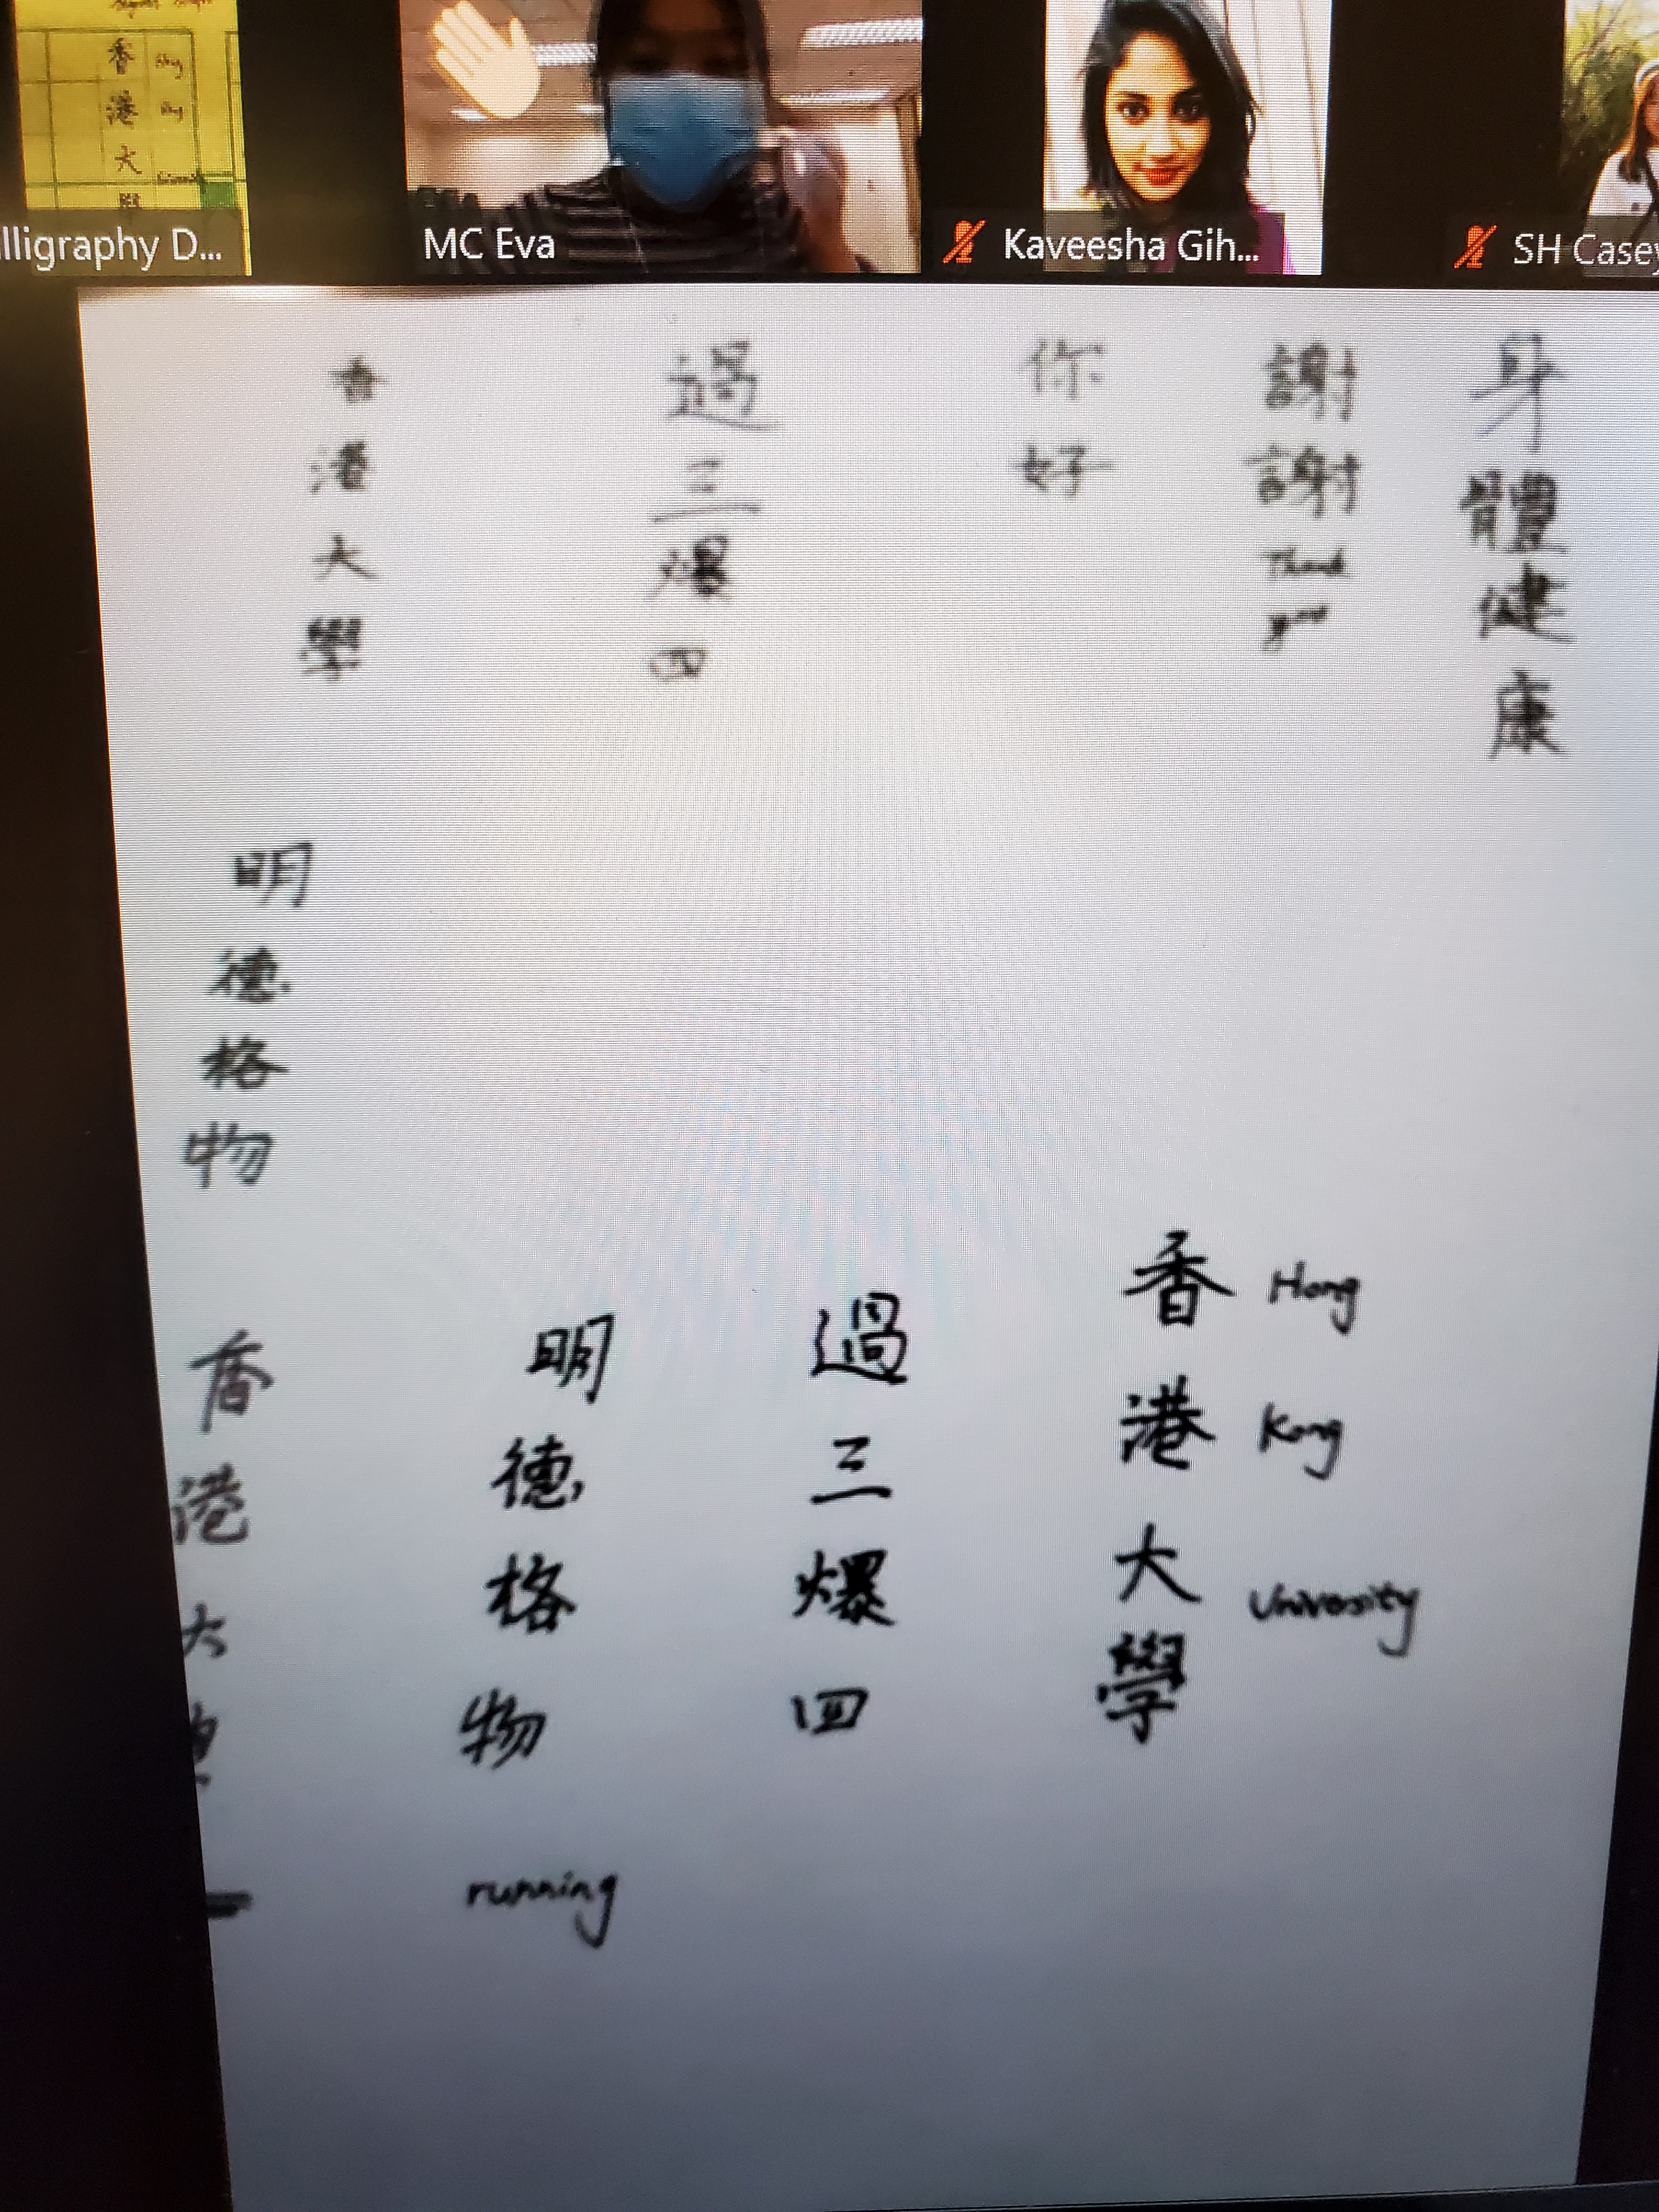 香 Hong
港 Kong
大
學
lligraphy D...
MC Eva
Kaveesha Gih...
SH Casey
香港大學
過三爆四
你好
謝謝
Thank
you
身體健康
明德格物
香港大學
明德格物
running
過三爆四
香 Hong
港 Kong
大 University
學